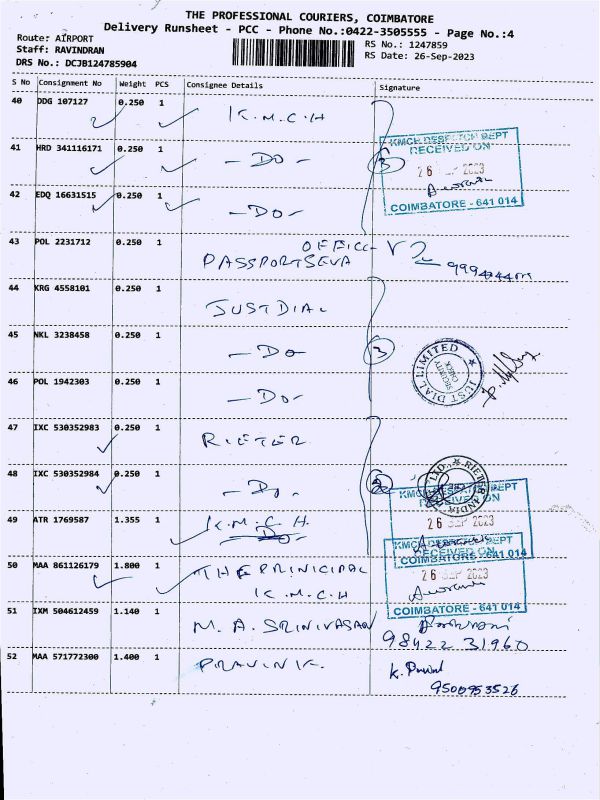 THE PROFESSIONAL COURIERS, COIMBATORE
Delivery Runsheet - PCC - Phone No.:0422-3505555 - Page No.:4
Route: AIRPORT
RS No.: 1247859
Staff: RAVINDRAN
RS Date: 26-Sep-2023
DRS No.: DCJB124785904
S No Consignment No Weight PCS Consignee Details Signature
40 DDG 107127 0.250 1 K.M.C.H
KMCH DESPATCH DEPT
RECEIVED ON
41 HRD 341116171 0.250 1 -DO- 3
26 SEP 2023
42 EDQ 16631515 0.250 1 -DO-
COIMBATORE - 641 014
43 POL 2231712 0.250 1 PASSPORTSEVA OFFICE
44 KRG 4558101 0.250 1 JUSTDIAL
45 NKL 3238458 0.250 1 -DO- 3
JUST DIAL LIMITED
SECURITY CHECK
46 POL 1942303 0.250 1 -DO-
47 IXC 530352983 0.250 1 RIETER
48 IXC 530352984 0.250 1 -DO-
LTD., RIETER INDIA
KMCH DESPATCH DEPT
RECEIVED ON
49 ATR 1769587 1.355 1 K.M.C.H.
DO
26 SEP 2023
COIMBATORE - 641 014
KMCH DESPATCH DEPT
RECEIVED ON
50 MAA 861126179 1.800 1 THE PRINICIPAL
K.M.C.H
26 SEP 2023
COIMBATORE - 641 014
51 IXM 504612459 1.140 1 M.A. SRINIVASAN
98422 31960
52 MAA 571772300 1.400 1 PRAVIN K.
9500953526